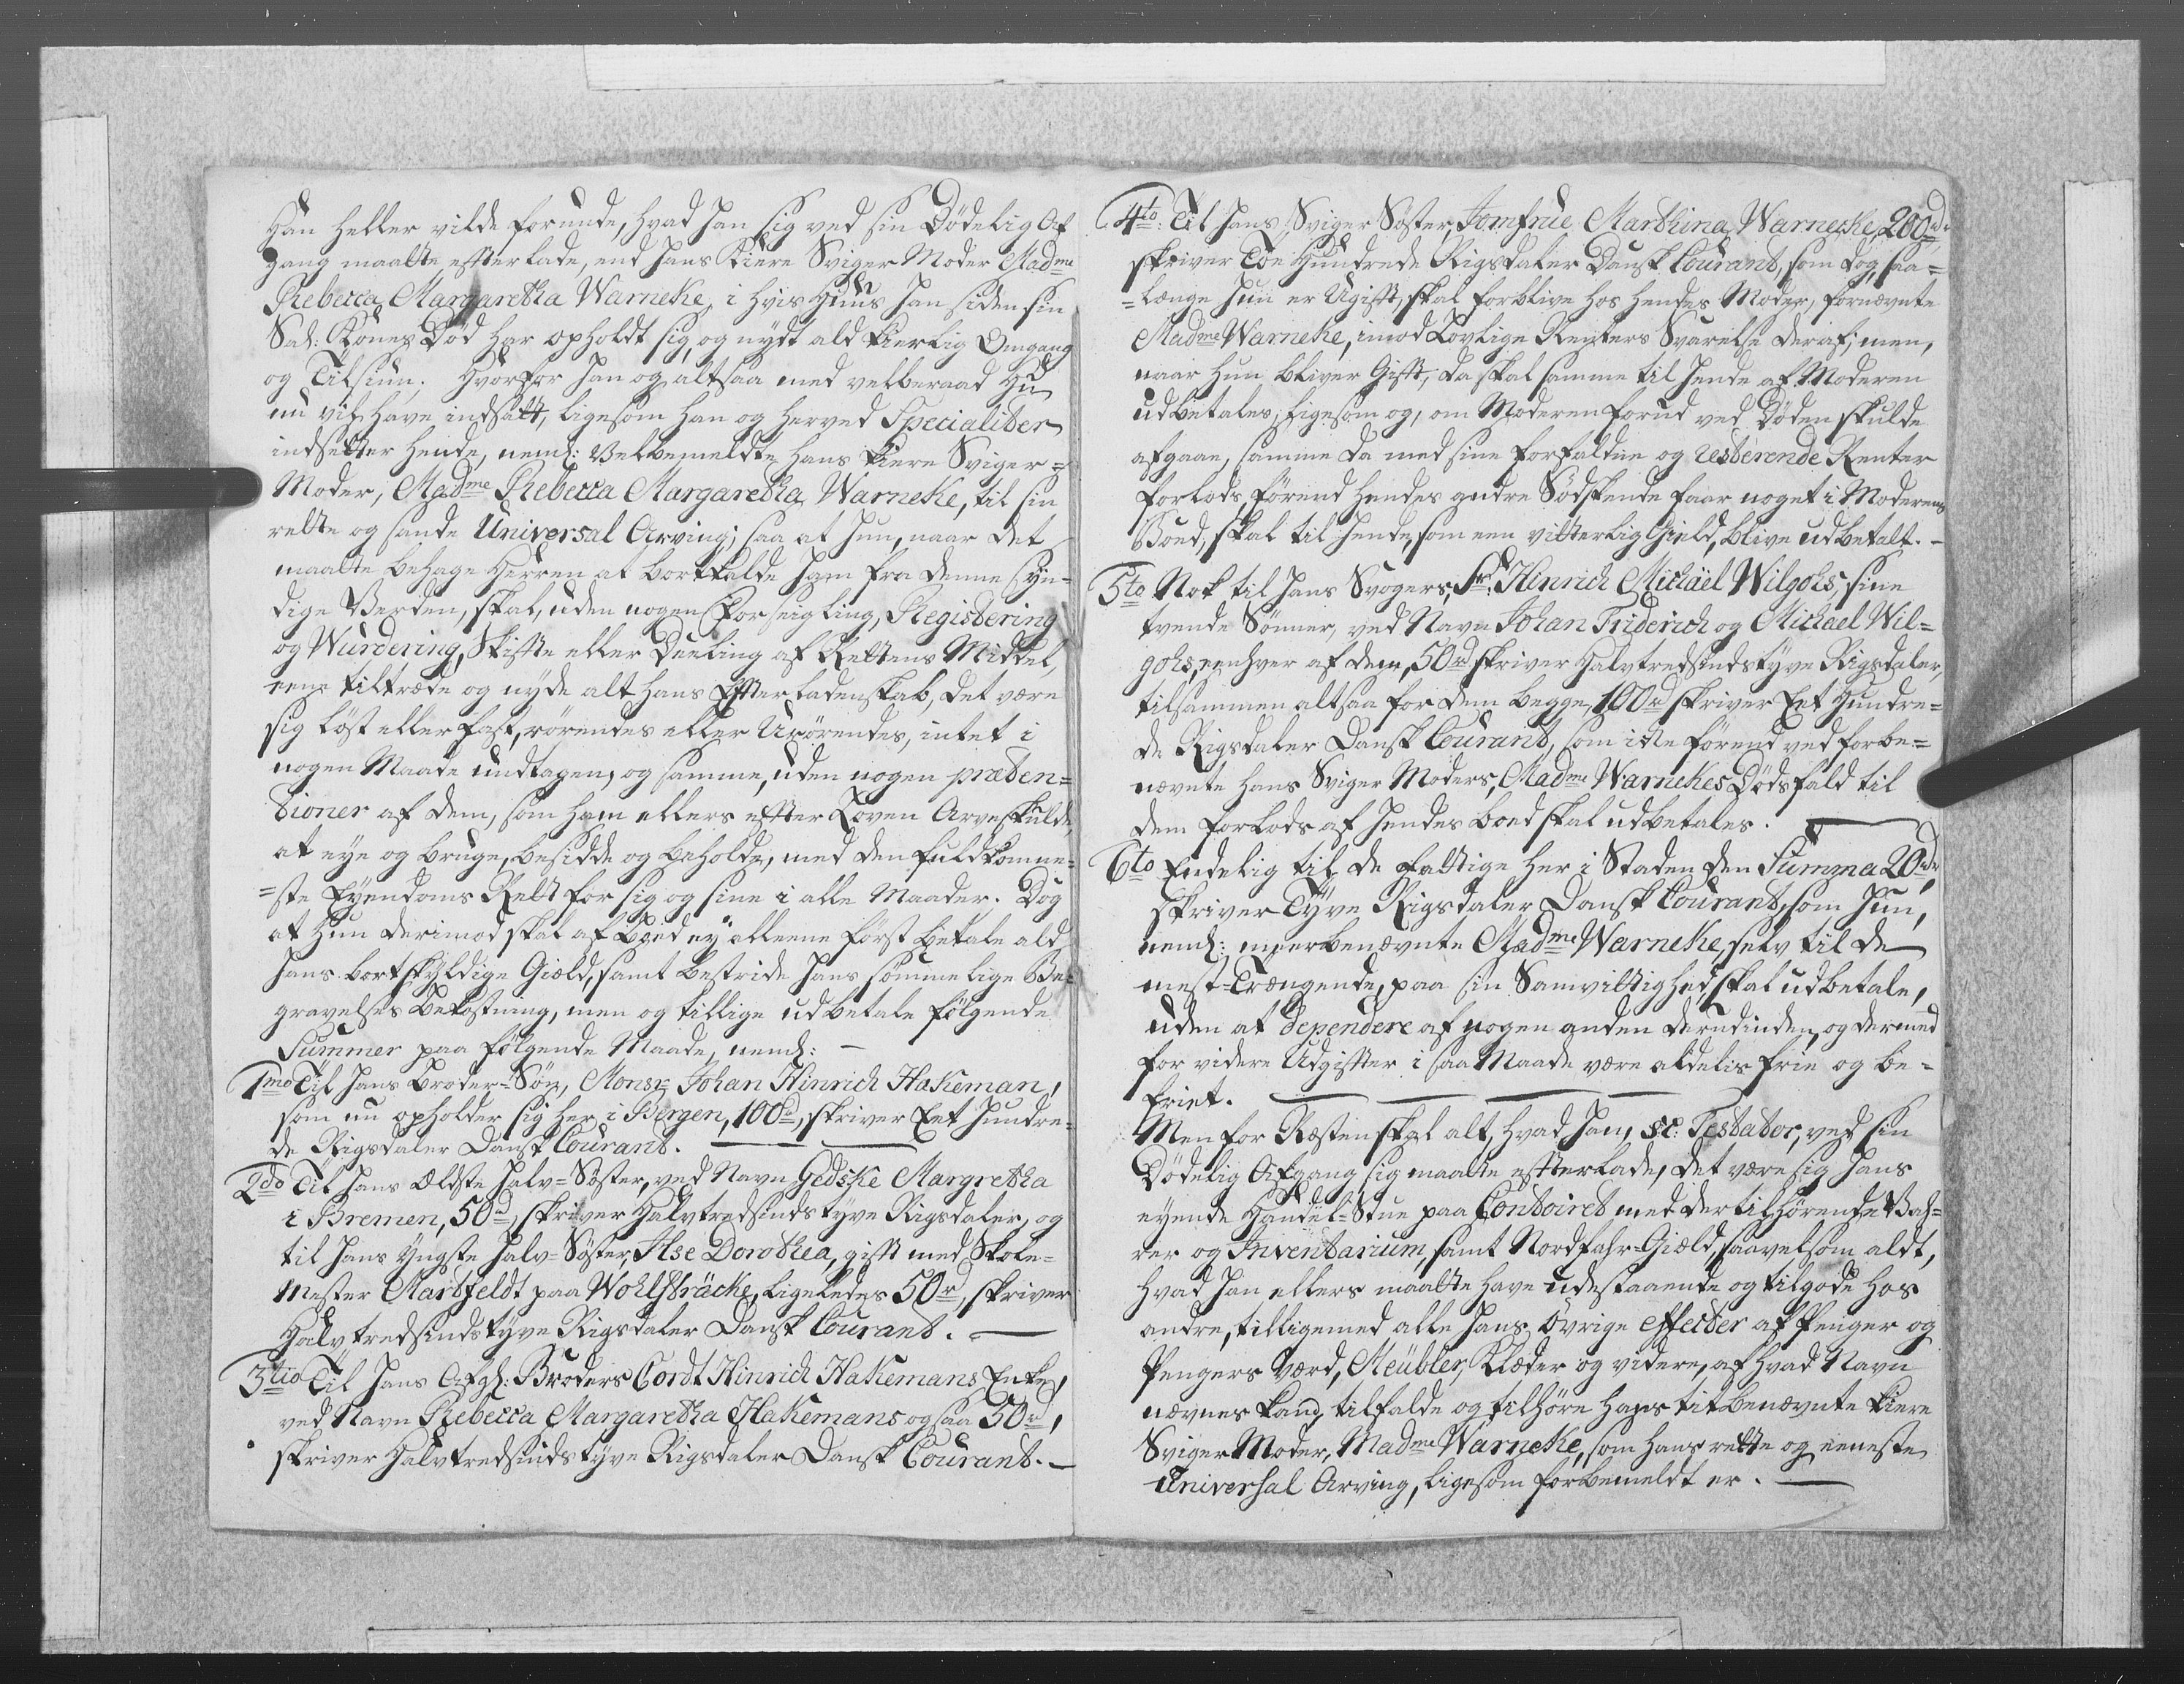 Han heller vilde forunde, hvad han sig ved sin Dödelig Af
gang maatte efterlade, end hans Kiere Sviger Moder Madme
Rebecca Margaretha Warneke, i hvis Huus han siden sin
Sal: Kones Död har opholdt sig, og nydt ald kierlig Omgang
og Tilsiun. Hvorfor han og altsaa med velberaad Hu
nu vil have indsatt, ligesom han og herved Specialiter
indsetter hende, neml: Velbemeldte hans Kiere Sviger=
Moder, Madme Rebecca Margaretha Warneke, til sin
rette og sande Universal Arving; saa at hun, naar det
maatte behage Herren at bortkalde ham fra denne Syn-
dige Verden, skal, uden nogen Forseigling, Registering
og Wurdering, Skifte eller Deeling af Rettens Middel,
eene tiltræde og nyde alt hans Efterladenskab, det være
sig löst eller fast, rörendes eller Urörendes, intet i
nogen Maade undtagen, og samme, uden nogen præten=
tioner af dem, som ham ellers efter Loven Arve skulde,
at eye og bruge, besidde og beholde, med den fuldkomne=
=ste Eyendoms Rett for sig og sine i alle Maader. Dog
at hun derimod skal af Boed ey alleene först betale ald
hans bortskyldige Giæld, samt bestride hans sömmelige Be=
gravelses Bekostning, men og tillige udbetale fölgende
Summer paa fölgende Maade, neml: -
1mo Til hans Broder=Sön, Monsr: Johan Hinrich Hakeman,
som nu opholder sig her i Bergen, 100rd, skriver Eet hundre=
de Rigsdaler Dansk Courant.
2do Til hans Eldste halv=Söster, ved Navn Gedske Margretha
i Bremen, 50rd, skriver Halvtredsindstyve Rigsdaler, og
til hans Yngste halv=Söster, Ilse Dorothea, gift med Skole=
Mester Martfeldt paa Wohlsträcke, ligeledes 50rd, skriver
Halvtredsindstyve Rigsdaler Dansk Courant.
3tio Til hans Afg: Broders Cordt Hinrich Hakemans Enke,
ved Navn Rebecca Margaretha Hakemans ogsaa 50rd,
skriver Halvtredsindstyve Rigsdaler Dansk Courant. -
4to: Til hans Sviger Söster, Jomfrue Marthina Warneke, 200rd.
skriver Toe Hundrede Rigsdaler Dansk Courant, som dog, saa=
=længe hun er Ugift, skal forblive hos hendes Moder, fornævnte
Madme Warneke, imod Lovlige Renters Svarelse deraf; men,
naar hun bliver Gift, da skal samme til hende af Moderen
udbetales; ligesom og, om Moderen forud ved Döden skulde
afgaae, samme da med sine forfaldne og resterende Renter
forlods, förend hendes andre Södskende faar noget i Moderens
Boed, skal til hende, som een vitterlig Gield, blive udbetalt. -
5to Nok til hans Svogers, Sr: Hinrich Michaël Wilgohs, sine
tvende Sönner, ved Navn Johan Friderich og Michael Wil=
gohs, eenhver af dem, 50rd skriver Halvtredsindstyve Rigsdaler,
tilsammen altsaa for dem begge, 100rd skriver Eet Hundre=
de Rigsdaler Dansk Courant, som ikke förend ved forbe=
nævnte hans Sviger Moders, Madme Warnekes Dödsfald til
dem forlods af hendes boed skal udbetales.
6to Endelig til de fattige her i Staden den Summa 20rdr,
skriver Tyve Rigsdaler Dansk Courant, som hun,
neml: meerbenævnte Madme Warneke, selv til de
mest=Trængende, paa sin Samvittighed skal udbetale,
uden at dependere af nogen anden derudinden, og dermed
for videre Udgifter i saa Maade være aldelis frie og be=
friet.
Men for Resten skal alt, hvad han, sc: Testator, ved sin
Dödelig Afgang sig maatte efterlade, det være sig hans
eyende Handel=Stue paa Contoiret med dertilhörende Vah=
rer og Inventarium, samt Nordfahr=Giæld, saavelsom aldt,
hvad han ellers maatte have udestaaende og tilgode hos
andre, tilligemed alle hans övrige Effecter af Penger og
Pengers Værd, Meübler, Klæder og videre, af hvad Navn
nævnes kand, tilfalde og tilhöre hans titbenævnte kiere
Sviger Moder, Madme Warneke, som hans rette og eeneste
Universal Arving, ligesom forbemeldt er.